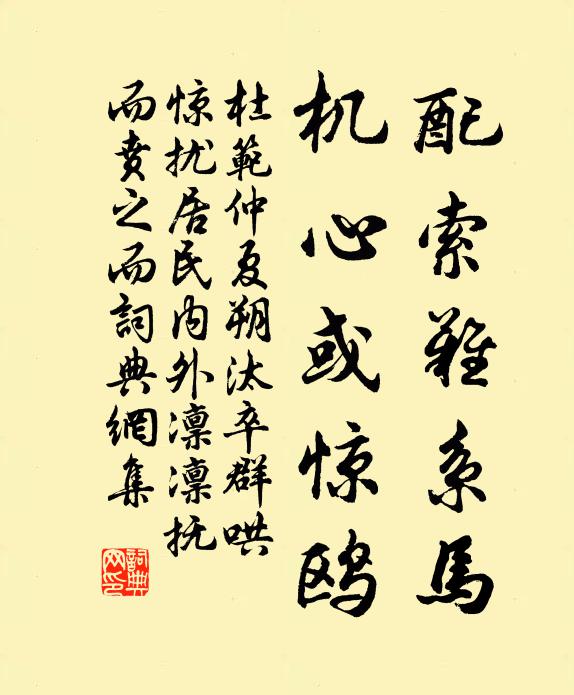 配索難系馬
机心或惊鸥
杜範仲夏朔汰卒群哄
惊扰居民内外凛凛抚
而賁之而詞典網集
詞典
网印